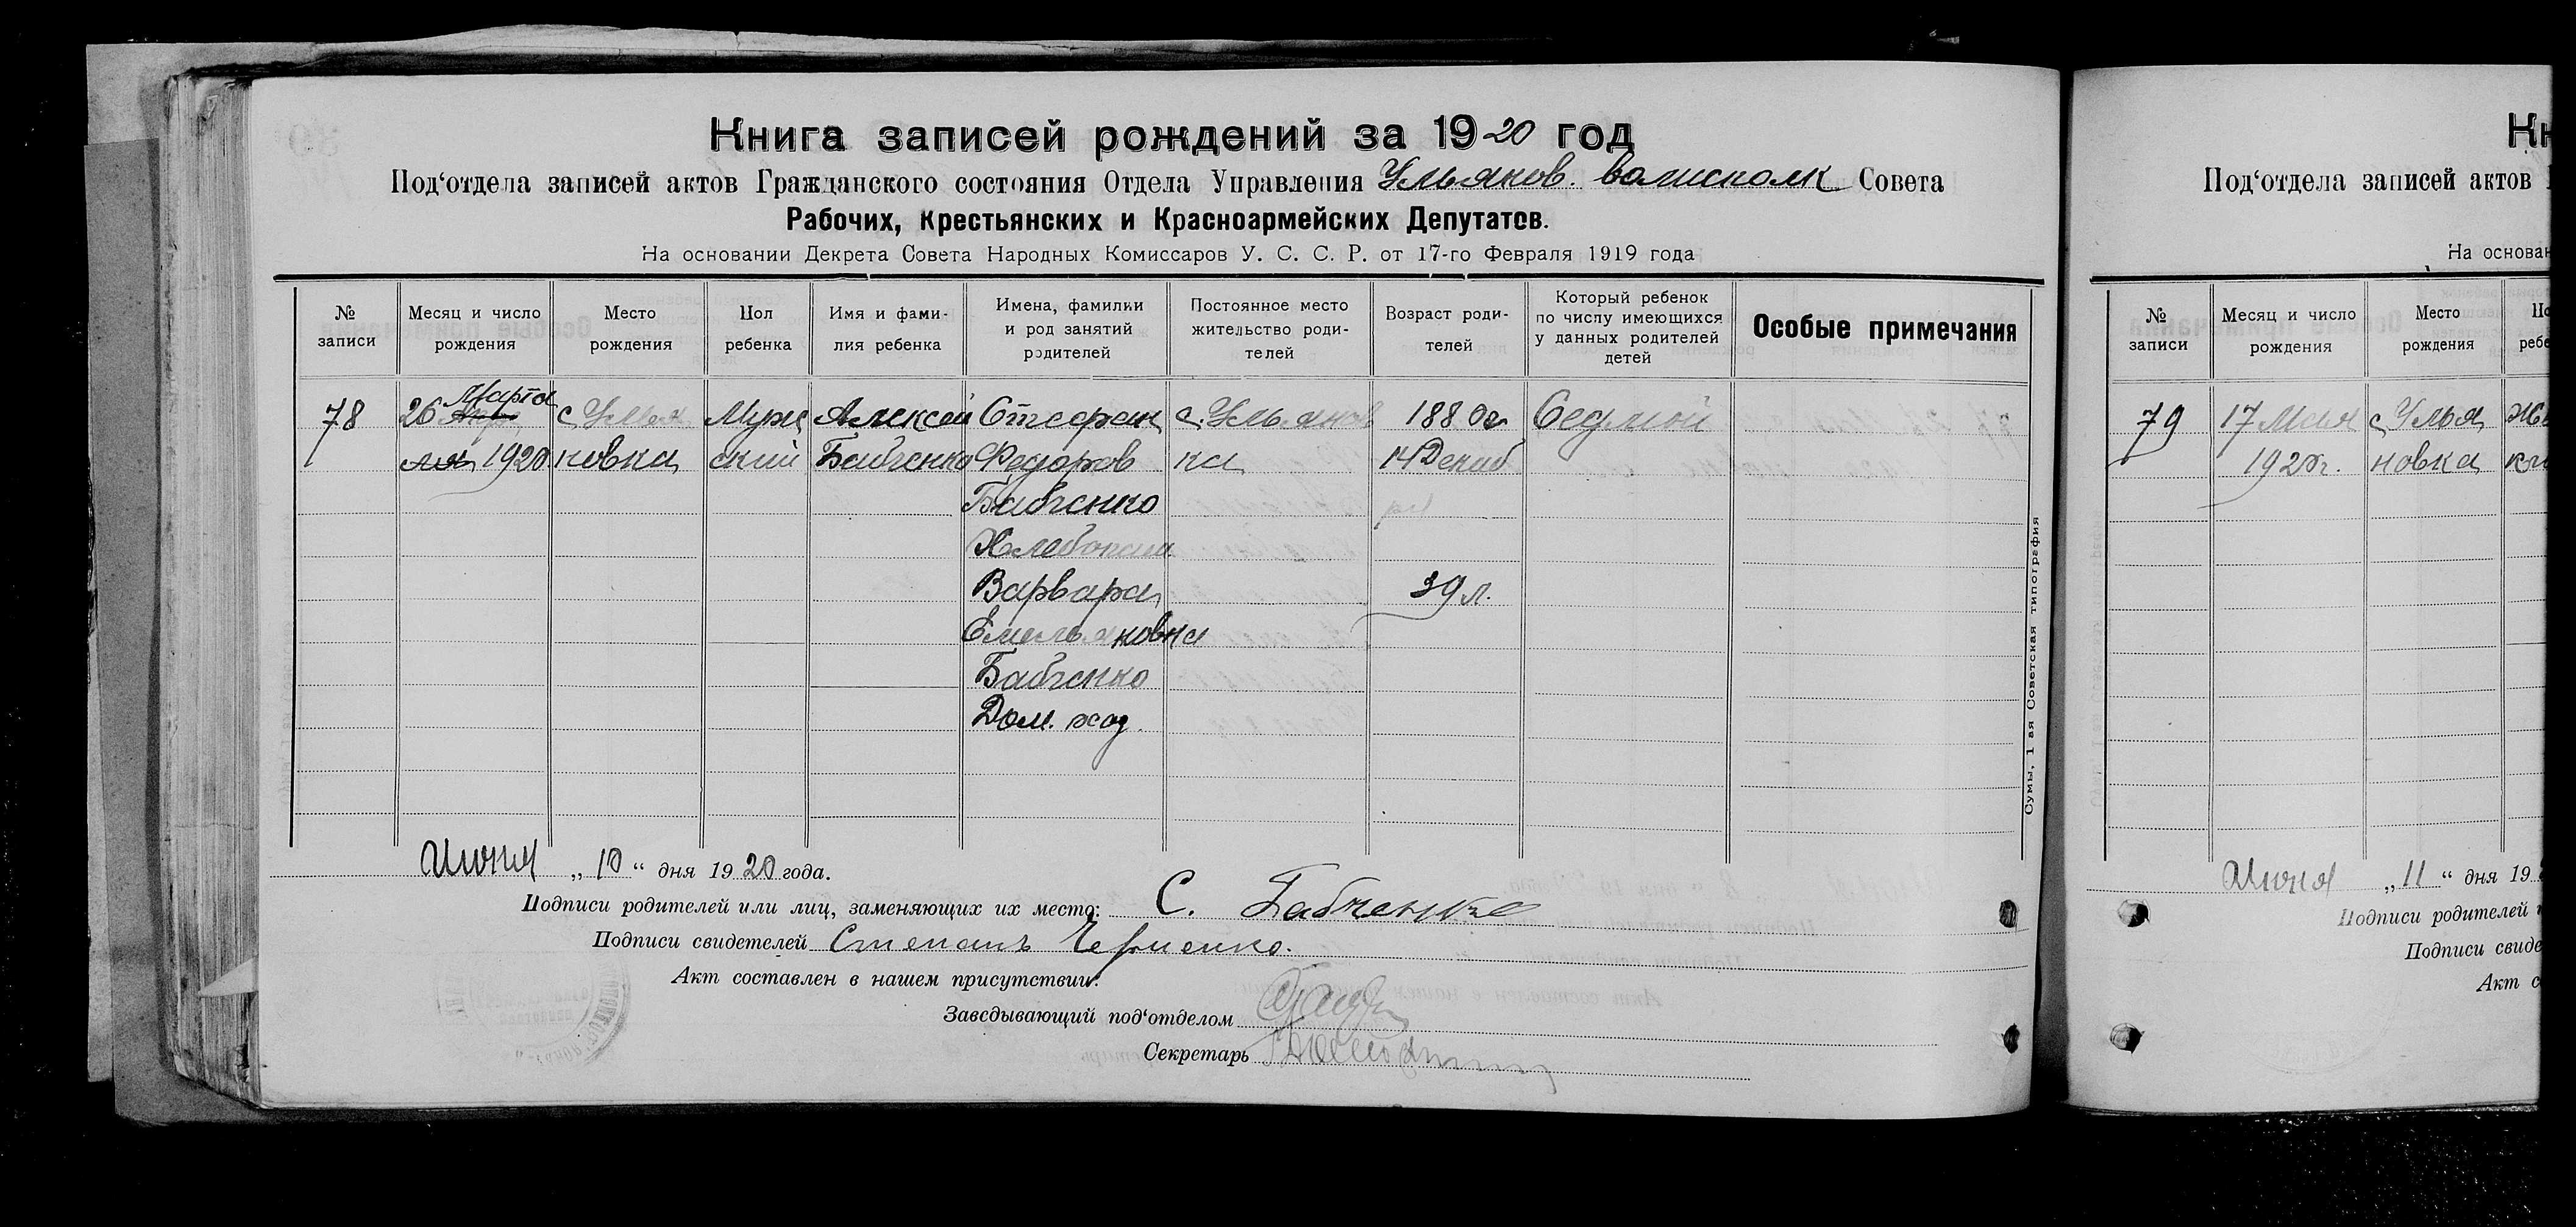 Книга записей рождений за 1920 год
Под'отдела записей актов Гражданского состояния Отдела Управления Ульянов. волисполк Совета
Рабочих, Крестьянских и Красноармейских Депутатов.
На основании Декрета Совета Народных Комиссаров У. С. С. Р. от 17-го Февраля 1919 года
№ записи
Месяц и число рождения
Место рождения
Пол ребенка
Имя и фами-
лия ребенка
Имена, фамилии
и род занятий
родителей
Постоянное место
жительство роди-
телей
Возраст роди-
телей
Который ребенок
по числу имеющихся
у данных родителей
детей
Особые примечания
78
26 Марта
Апре
ля 1920
с Улья
новка
Муж
ский
Алексей
Бабченко
Стефан
Федоров
Бабченко
Хлебопаш
Варвара
Емельяновна
Бабченко
Дом. хоз.
с. Ульянов
ка
1880г
14 Декаб
ря
39 л.
Седмой
Июня „10“ дня 1920 года.
Подписи родителей или лиц, заменяющих их место: С. Бабченко
Подписи свидетелей Степанъ
Акт составлен в нашем присутствии:
Заведывающий под'отделом
Секретарь
Сумы, 1 ая Советская типография
Кн
Под'отдела записей актов
На основан
№ записи
Месяц и число рождения
Место рождения
По
ребе
79
17 Мая
1920г.
с Улья
новка
Июня „11“ дня 19
Подписи родителей
Подписи свиде
Акт с